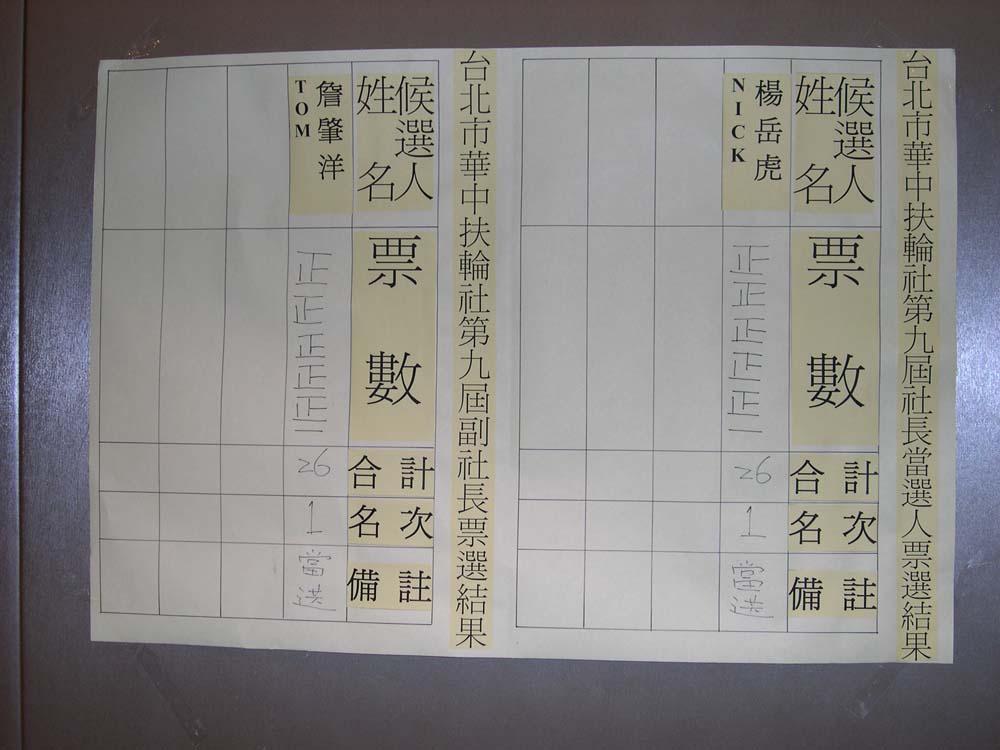 台北市華中扶輪社第九屆社長當選人票選結果
候選人
姓名
票數
合計
名次
備註
楊岳虎
NICK
正正正正正一
26
1
當選
台北市華中扶輪社第九屆副社長票選結果
候選人
姓名
票數
合計
名次
備註
詹肇洋
TOM
正正正正正一
26
1
當選